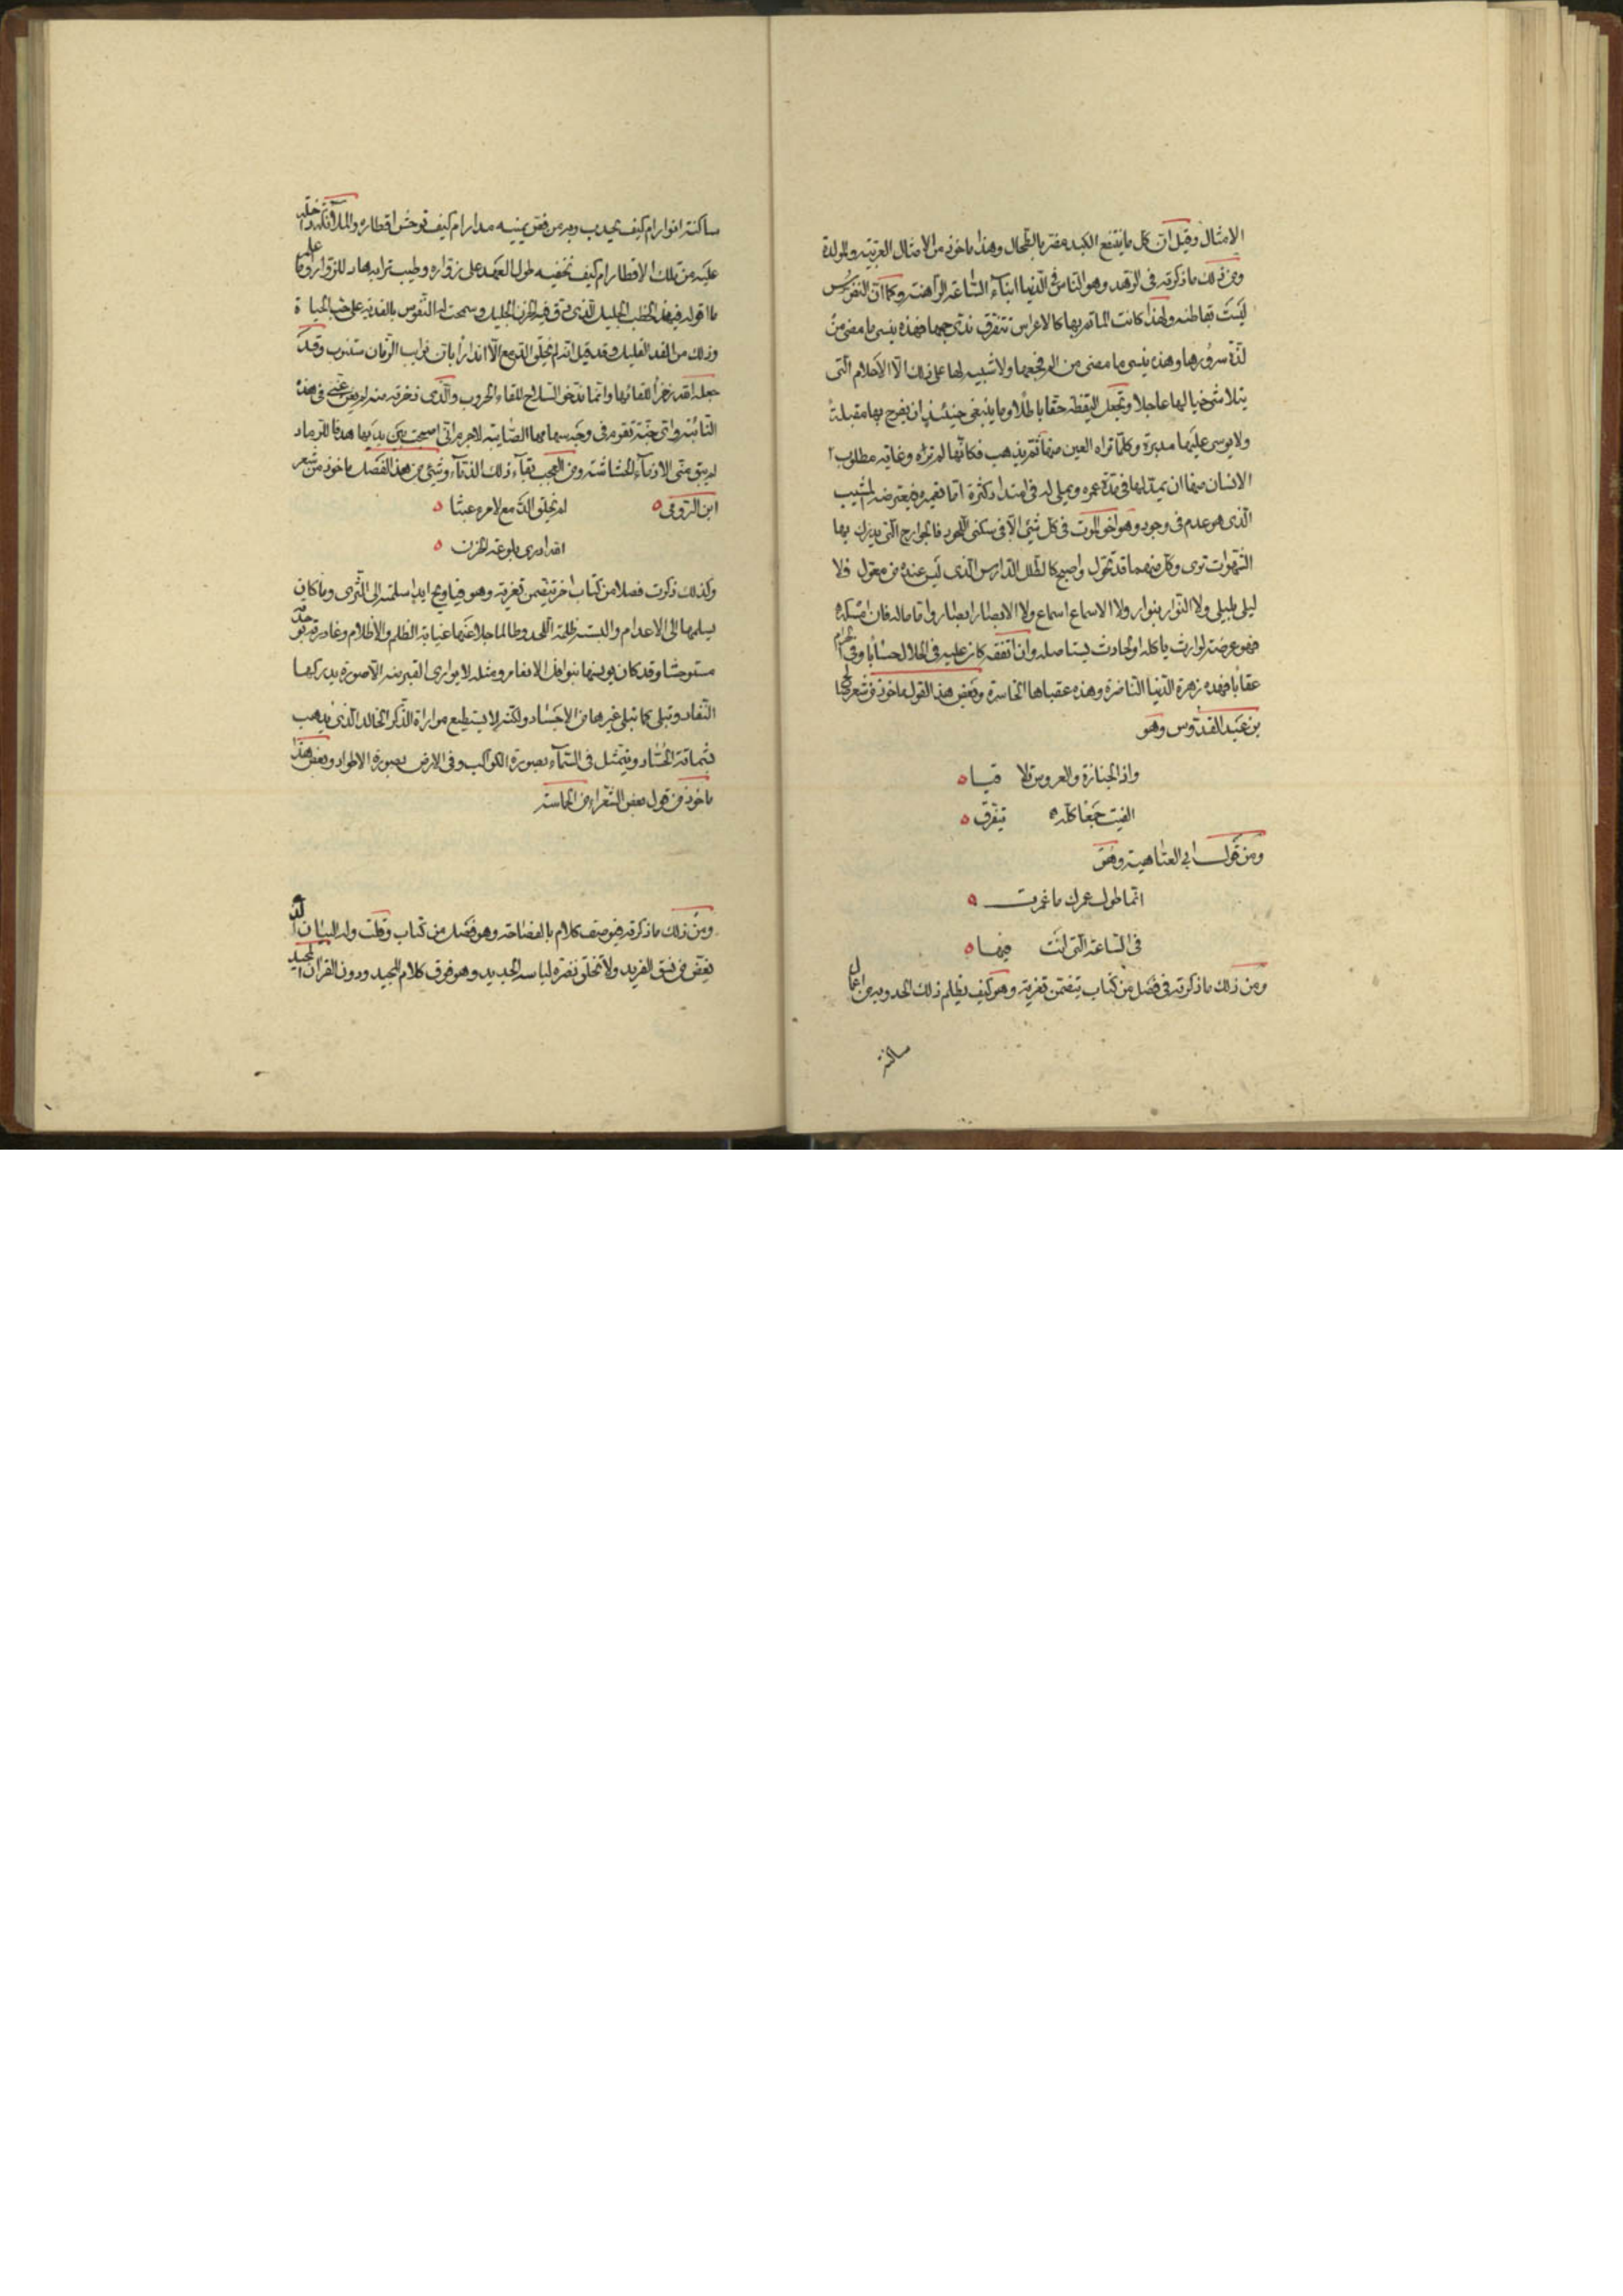 الامثال وقيل ان كل ما ينفع الكبد مضر بالطحال وهذا ماخوذ من الامثال العربية والمولدة
ومن ذلك ما ذكرته في الزهد وهو الناس في الدنيا ابناء الساعة الراهنة وكما ان النفوس
ليست بقاطنة ولهذا كانت الماتم بها كالاعراس تتفرق ندى جمعها فهذه ينسى ما مضى من
لذة سرورها وهذه ينسى ما مضى من الم فجعها ولا شبيه لها على ذلك الا الاحلام التي
يتلاشى خيالها عاجلا وتجعل اليقظة حقها باطلا وما ينبغي حينئذ ان يفرح بها مقبلة
ولا يوسى عليها مدبرة وكلما تراه العين منها ثم يذهب فكانها لم تره وغاية مطلوب
الانسان منها ان يمد لها في مدة عمره ويملى له في امتداد كثرة اما تعميره فيعترضه المشيب
الذي هو عدم في وجود وهو اخو الموت في كل شيء الا في سكنى اللحود فالجوارح التي يدرك بها
الشهوات توى وكل منهما قد تحول واصبح كالطلل الدارس الذي ليس عنده من معول فلا
ليلى بليلى ولا النوار بنوار ولا الاسماع اسماع ولا الابصار ابصار واما ماله فان امسكه
فهو عرضة لوارث ياكله او لحادث يستاصله وان انفقه كان عليه في الحلال حسابا وفي الحرام
عقابا فهذه زهرة الدنيا الناضرة وهذه عقباها الخاسرة وبعض هذا القول ماخوذ من شعر
بن عبد القدوس وهو
واذا الجنازة والعروس تلاقيا
الفيت جمعا كله يتفرق
ومن قول ابي العتاهية وهو
انما طول عمرك ما عمرت
في الساعة التي انت فيها
ومن ذلك ما ذكرته في فصل من كتاب يتضمن تعزية وهو كيف يظلم ذلك اللحد وبه من اعمال
ساكنه
ساكنه انوار ام كيف يجدب وبه من فيض يمينه مدرار ام كيف توحش اقطاره والملائكة داخلة
عليه من تلك الاقطار ام كيف تخفيه طول العهد على زواره وطيب ترابه هاد للزوار وما اعلم
ما اقوله في هذا الخطب الجليل الذي دق فيه الحزن الجليل وسمحت له النفوس بالفدية على حب الحياة
وذلك من الفداء القليل وقد قيل انه لم يخلق الدمع الا انذارا بان نوايب الزمان ستنوب وقد
جعله الله ذخرا للقائها وانما يدخر السلاح للقاء الحروب والذي ذخرته منه لم يغن عني في هذه
النائبة واي جنة تقوم في وجه سهامها الصايبة لا جرم اني اصبحت بين يديها هدفا للرماد
لم يبق مني الا ذماء الحشاشة ومن العجب بقاء ذلك الذماء وشيء من هذا الفصل ماخوذ من شعر
ابن الرومي لم يخلق الدمع لامرء عبثا
الله ادرى بلوعة الحزن
وكذلك ذكرت فصلا من كتاب اخر يتضمن تعزية وهو فيا ويح ايد اسلمته الى الثرى وما كان
يسلمها الى الاعدام والبسته ظلمة اللحد وطالما جلا عنها غيابة الظلم والاظلام وغادرته بوحدة
مستوحشا وقد كان يونسها بنوافل الانعام ومثله لا يواري القبر منه الا صورة يدركها
النفاد وتبلى كما تبلى غيرها من الاجساد ولكنه لا يستطيع مواراة الذكر الخالد الذي يذهب
بشماتة الحساد ويتمثل في السماء بصورة الكواكب وفي الارض بصورة الاطواد وبعض هذا
ماخوذ من قول بعض الشعراء من الحماسة
ومن ذلك ما ذكرته في وصف كلام بالفصاحة وهو فصل من كتاب وقلت وله البيان الذي
يغض من نسق الفريد ولا تخلق نضرة لباسه الجديد وهو فوق كلام المجيد ودون القران المجيد